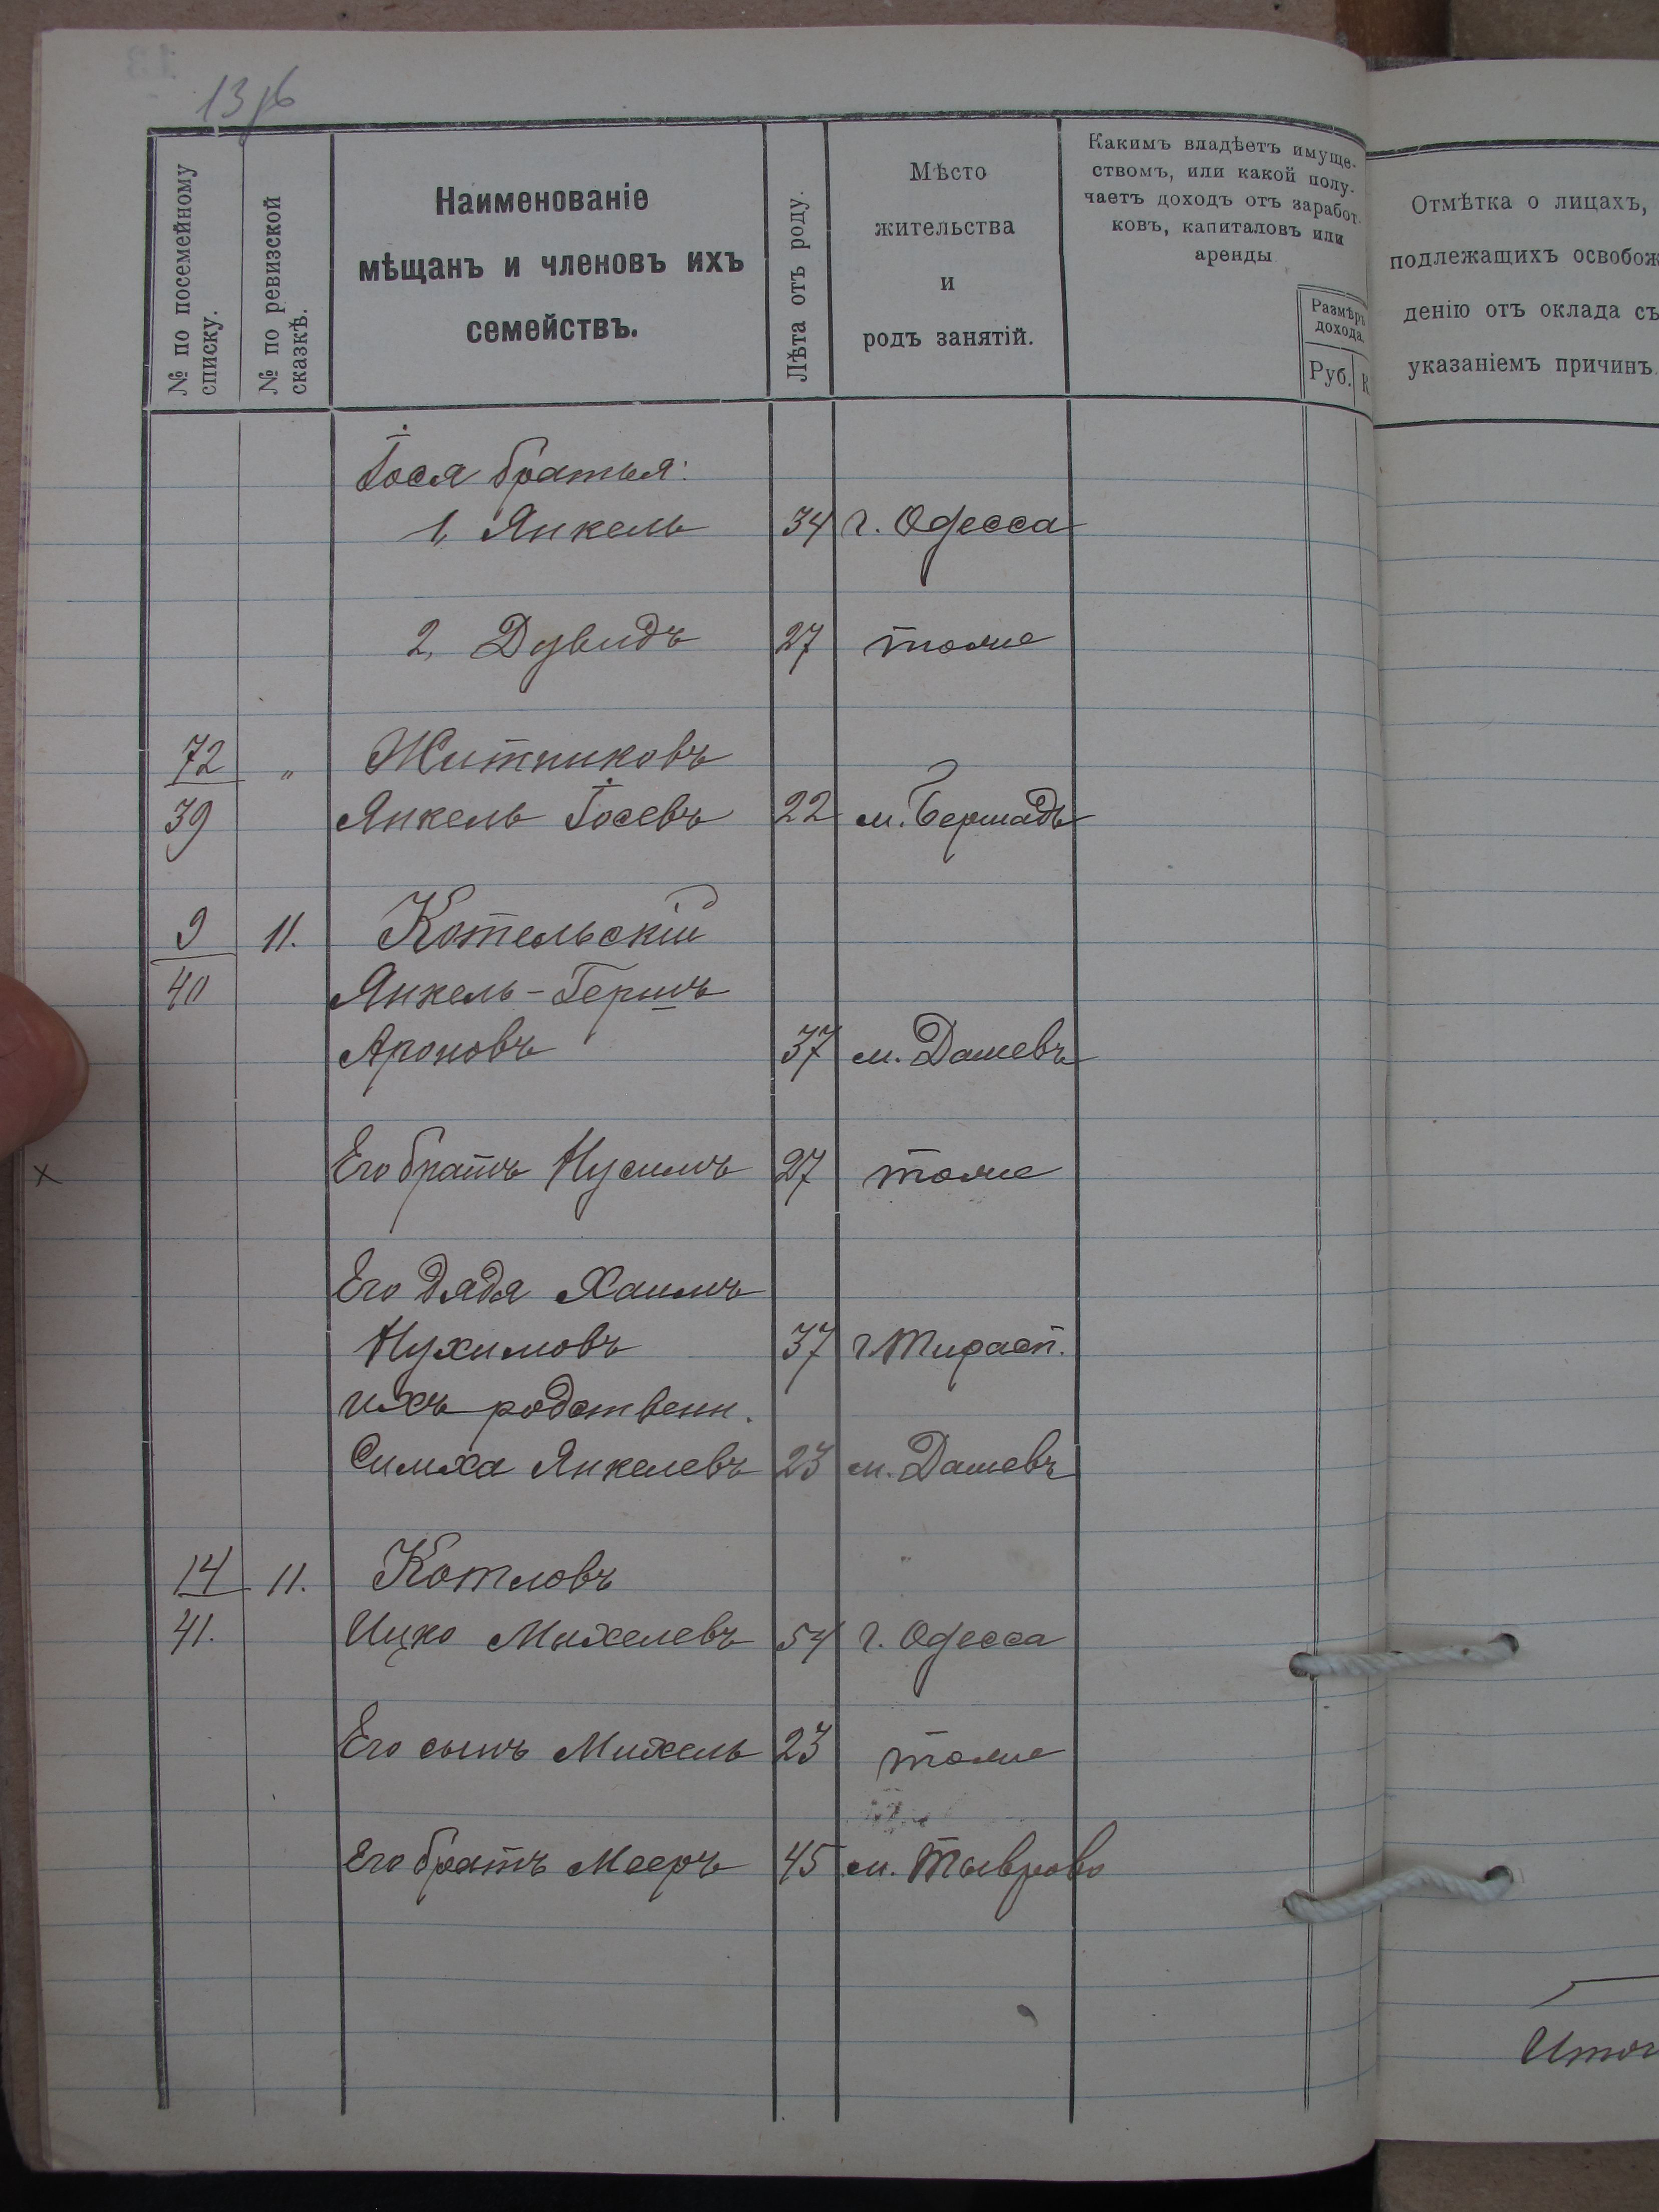 13 об
№ по посемейному
списку.
№ по ревизской
сказкѣ.
Наименованіе
мѣщанъ и членовъ ихъ
семействъ.
Лѣта отъ роду.
Мѣсто
жительства
и
родъ занятій.
Какимъ владѣетъ имуще-
ствомъ, или какой полу-
чаетъ доходъ отъ заработ-
ковъ, капиталовъ или
аренды
Размѣръ
дохода.
Руб. К
Отмѣтка о лицахъ,
подлежащихъ освобож
денію отъ оклада съ
указаніемъ причинъ
Іося братья:
1, Янкель 34 г. Одесса
2, Дувидъ 27 тоже
72 " Житниковъ
39 Янкель Іосевъ 22 м. Бершадь
9 11. Котельскій
40 Янкель-Гершъ
Ароновъ 37 м. Дашевъ
Его братъ Нусимъ 27 тоже
Его дядя Хаимъ
Нухимовъ 37 г. Тирасп.
ихъ родственн.
Симха Янкелевъ 23 м. Дашевъ
14 11. Котловъ
41. Ицко Михелевъ 54 г. Одесса
Его сынъ Михель 23 тоже
Его братъ Мееръ 45 м. Тыврово
Итог